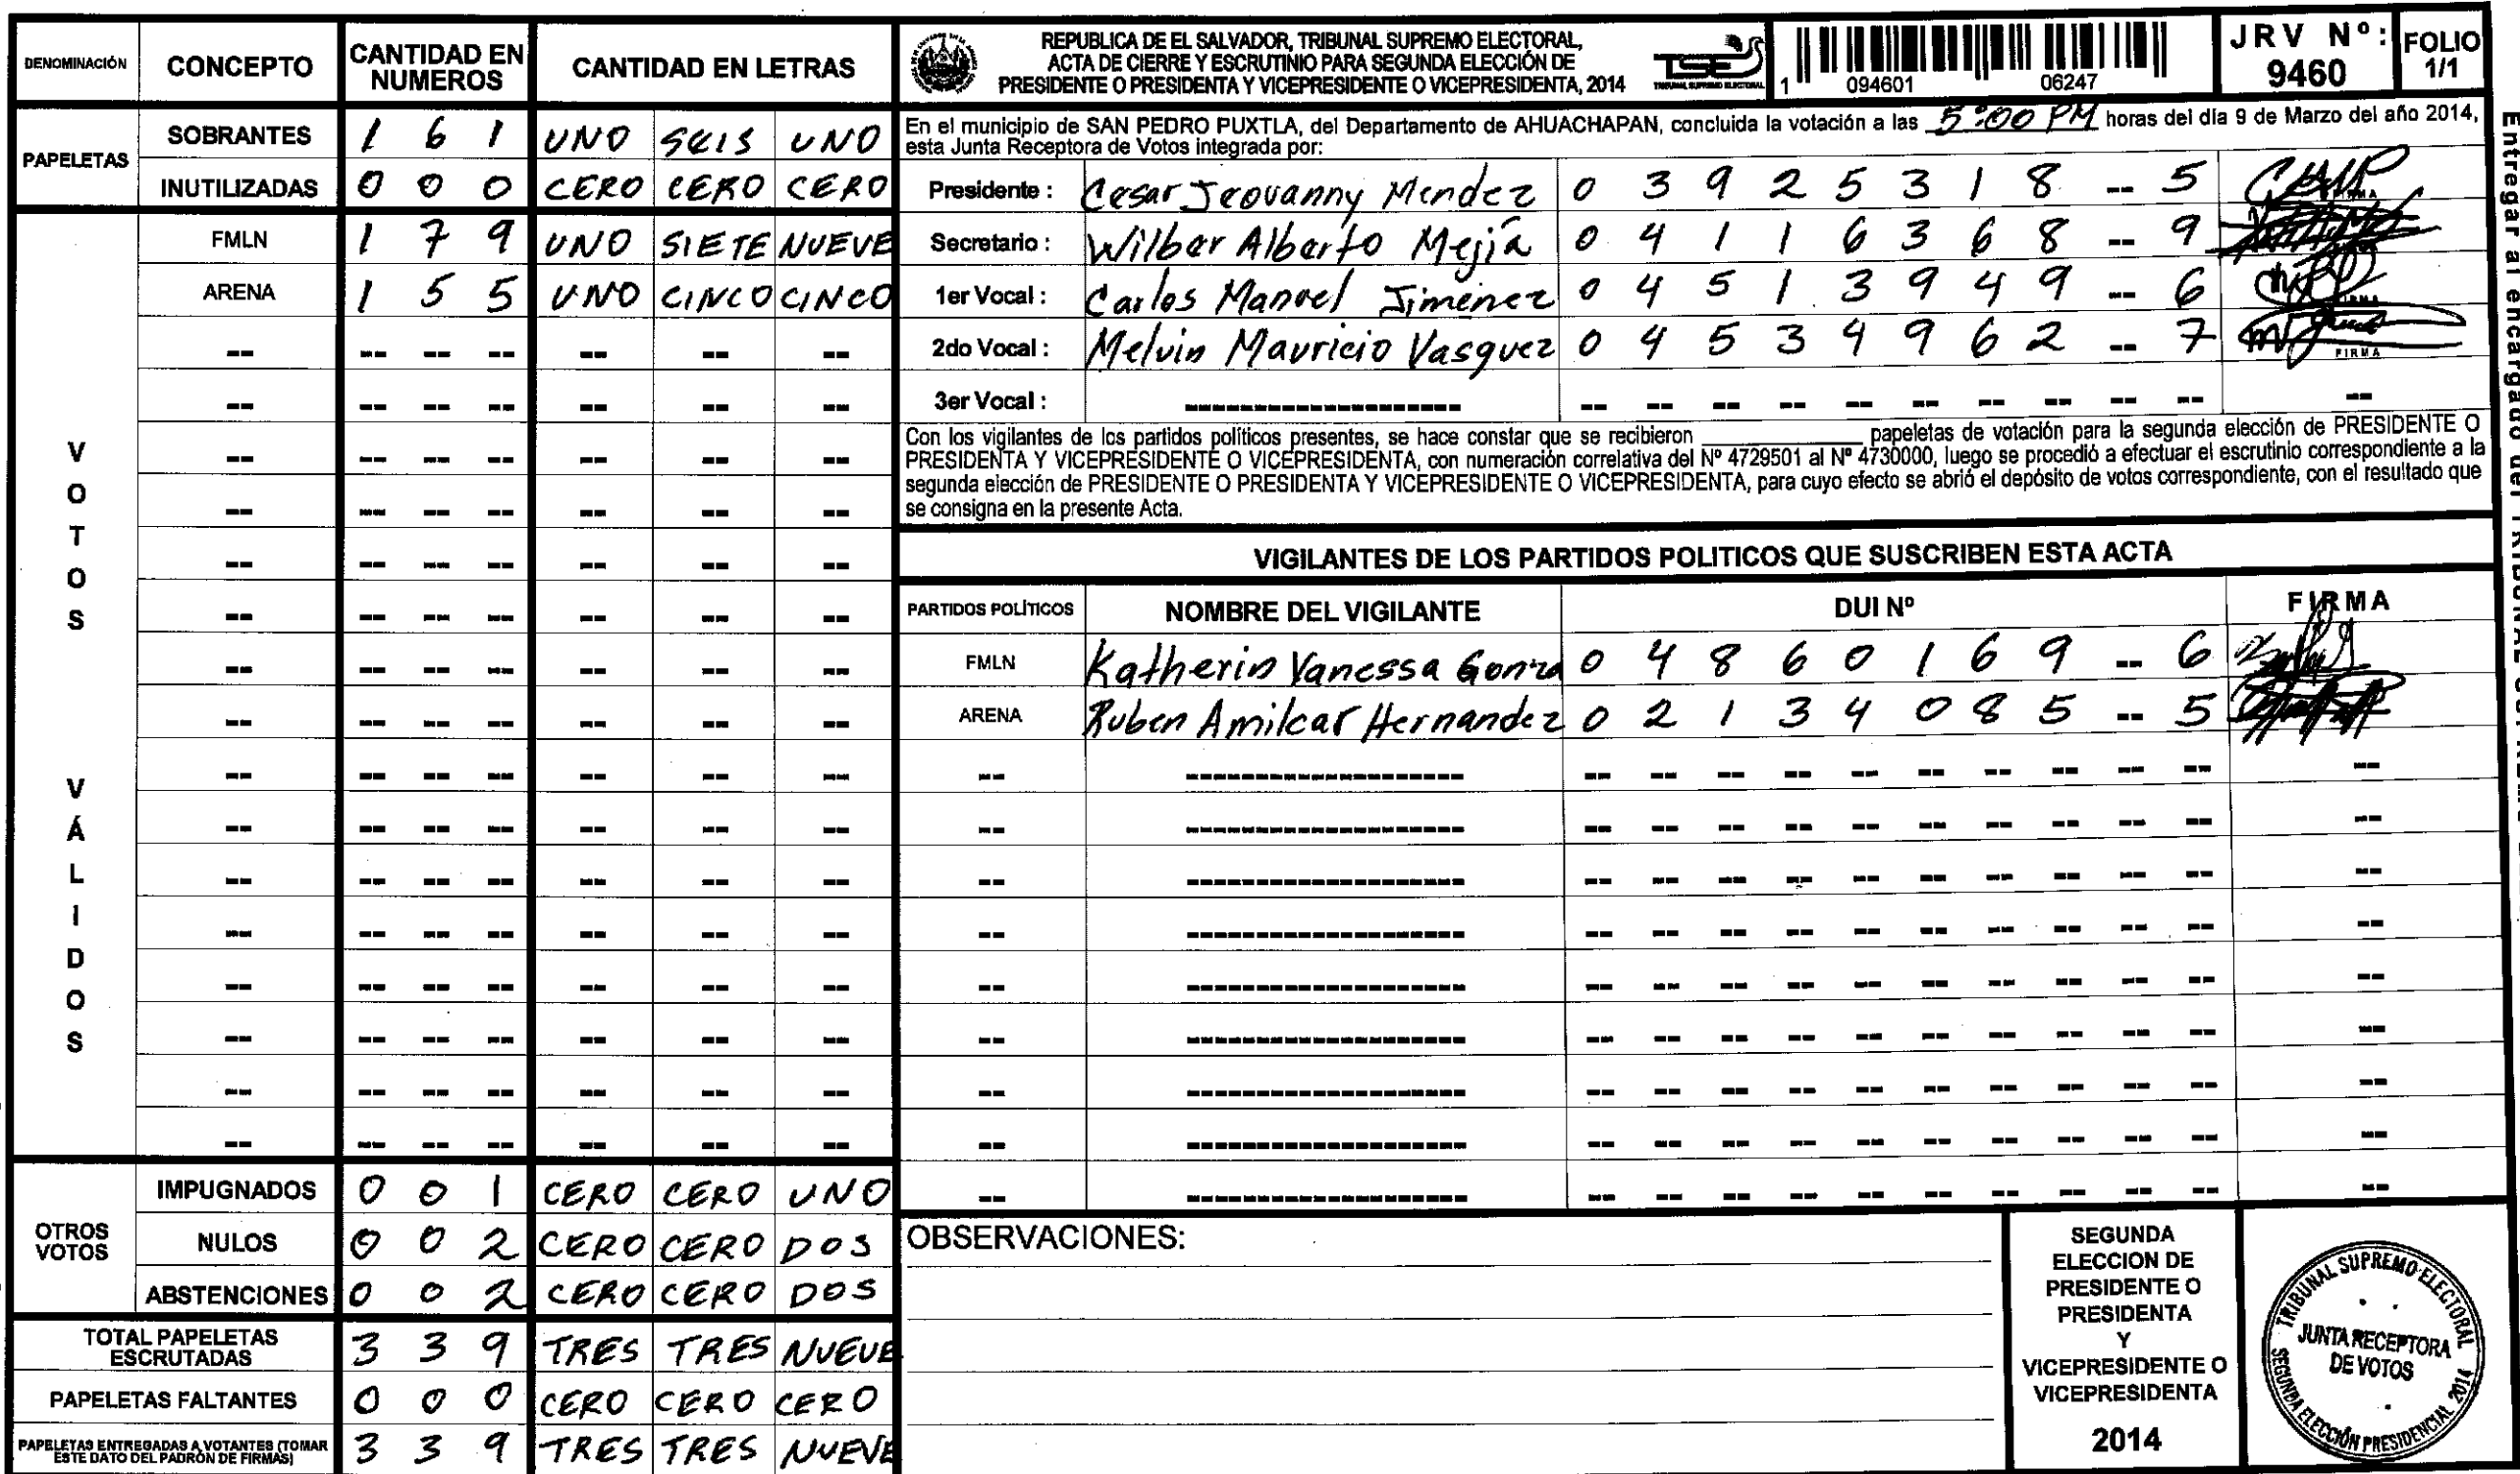 DENOMINACIÓN CONCEPTO CANTIDAD EN NUMEROS CANTIDAD EN LETRAS
PAPELETAS
SOBRANTES 1 6 1 UNO SEIS UNO
INUTILIZADAS 0 0 0 CERO CERO CERO
VOTOS VÁLIDOS
FMLN 1 7 9 UNO SIETE NUEVE
ARENA 1 5 5 UNO CINCO CINCO
OTROS VOTOS
IMPUGNADOS 0 0 1 CERO CERO UNO
NULOS 0 0 2 CERO CERO DOS
ABSTENCIONES 0 0 2 CERO CERO DOS
TOTAL PAPELETAS ESCRUTADAS 3 3 9 TRES TRES NUEVE
PAPELETAS FALTANTES 0 0 0 CERO CERO CERO
PAPELETAS ENTREGADAS A VOTANTES (TOMAR ESTE DATO DEL PADRÓN DE FIRMAS) 3 3 9 TRES TRES NUEVE
REPUBLICA DE EL SALVADOR, TRIBUNAL SUPREMO ELECTORAL,
ACTA DE CIERRE Y ESCRUTINIO PARA SEGUNDA ELECCIÓN DE
PRESIDENTE O PRESIDENTA Y VICEPRESIDENTE O VICEPRESIDENTA, 2014
TSE
TRIBUNAL SUPREMO ELECTORAL
1 094601 06247
JRV Nº: 9460
FOLIO 1/1
En el municipio de SAN PEDRO PUXTLA, del Departamento de AHUACHAPAN, concluida la votación a las 5:00 PM horas del día 9 de Marzo del año 2014,
esta Junta Receptora de Votos integrada por:
Presidente : Cesar Jeovanny Mendez 0 3 9 2 5 3 1 8 -- 5 FIRMA
Secretario : Wilber Alberto Mejía 0 4 1 1 6 3 6 8 -- 9
1er Vocal : Carlos Manuel Jimenez 0 4 5 1 3 9 4 9 -- 6 FIRMA
2do Vocal : Melvin Mauricio Vasquez 0 4 5 3 4 9 6 2 -- 7 FIRMA
3er Vocal :
Con los vigilantes de los partidos políticos presentes, se hace constar que se recibieron ____________ papeletas de votación para la segunda elección de PRESIDENTE O
PRESIDENTA Y VICEPRESIDENTE O VICEPRESIDENTA, con numeración correlativa del Nº 4729501 al Nº 4730000, luego se procedió a efectuar el escrutinio correspondiente a la
segunda elección de PRESIDENTE O PRESIDENTA Y VICEPRESIDENTE O VICEPRESIDENTA, para cuyo efecto se abrió el depósito de votos correspondiente, con el resultado que
se consigna en la presente Acta.
VIGILANTES DE LOS PARTIDOS POLITICOS QUE SUSCRIBEN ESTA ACTA
PARTIDOS POLÍTICOS NOMBRE DEL VIGILANTE DUI Nº FIRMA
FMLN Katherin Vanessa Gonza 0 4 8 6 0 1 6 9 -- 6
ARENA Ruben Amilcar Hernandez 0 2 1 3 4 0 8 5 -- 5
OBSERVACIONES:
SEGUNDA
ELECCION DE
PRESIDENTE O
PRESIDENTA
Y
VICEPRESIDENTE O
VICEPRESIDENTA
2014
TRIBUNAL SUPREMO ELECTORAL
JUNTA RECEPTORA
DE VOTOS
SEGUNDA ELECCIÓN PRESIDENCIAL 2014
Entregar al encargado del TRIBUNAL